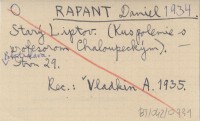 O RAPANT Daniel 1934.
Starý Liptov. (Kuspolenie s
profesorom Chaloupeckým). —
Bratislava.
Stran 29.
Rec.: Vladkin A. 1935.